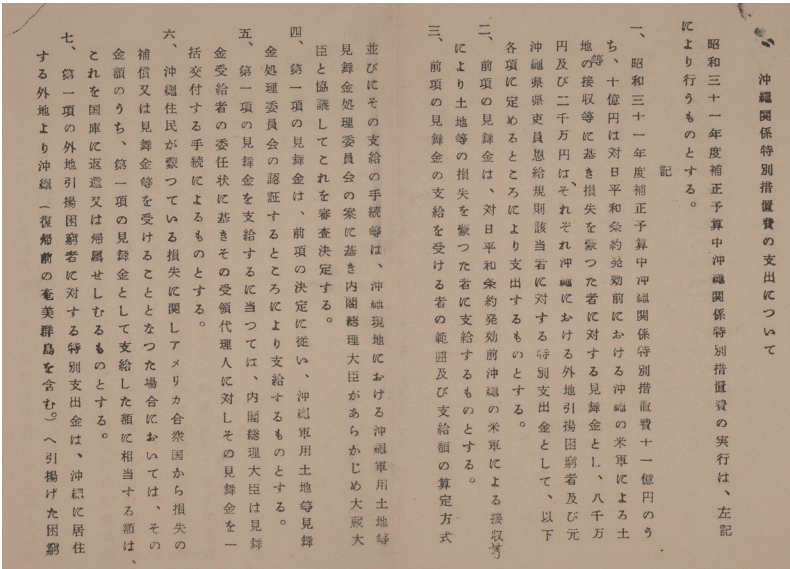 沖縄関係特別措置費の支出について
昭和三十一年度補正予算中沖縄関係特別措置費の実行は、左記
により行うものとする。
記
一、昭和三十一年度補正予算中沖縄関係特別措置費十一億円のう
ち、十億円は対日平和条約発効前における沖縄の米軍による土
地等の接収等に基き損失を蒙つた者に対する見舞金とし、八千万
円及び二千万円は、それぞれ沖縄における外地引揚困窮者及び元
沖縄県県吏員恩給規則該当者に対する特別支出金として、以下
各項に定めるところにより支出するものとする。
二、前項の見舞金は、対日平和条約発効前沖縄の米軍による接収等
により土地等の損失を蒙つた者に支給するものとする。
三、前項の見舞金の支給を受ける者の範囲及び支給額の算定方式
並びにその支給の手続等は、沖縄現地における沖縄軍用土地等
見舞金処理委員会の案に基き内閣総理大臣があらかじめ大蔵大
臣と協議してこれを審査決定する。
四、第一項の見舞金は、前項の決定に従い、沖縄軍用土地等見舞
金処理委員会の認証するところにより支給するものとする。
五、第一項の見舞金を支給するに当つては、内閣総理大臣は見舞
金受給者の委任状に基きその受領代理人に対しその見舞金を一
括交付する手続によるものとする。
六、沖縄住民が蒙つている損失に関しアメリカ合衆国から損失の
補償又は見舞金等を受けることとなつた場合においては、その
金額のうち、第一項の見舞金として支給した額に相当する額は、
これを国庫に返還又は帰属せしむるものとする。
七、第一項の外地引揚困窮者に対する特別支出金は、沖縄に居住
する外地より沖縄（復帰前の奄美群島を含む。）へ引揚げた困窮